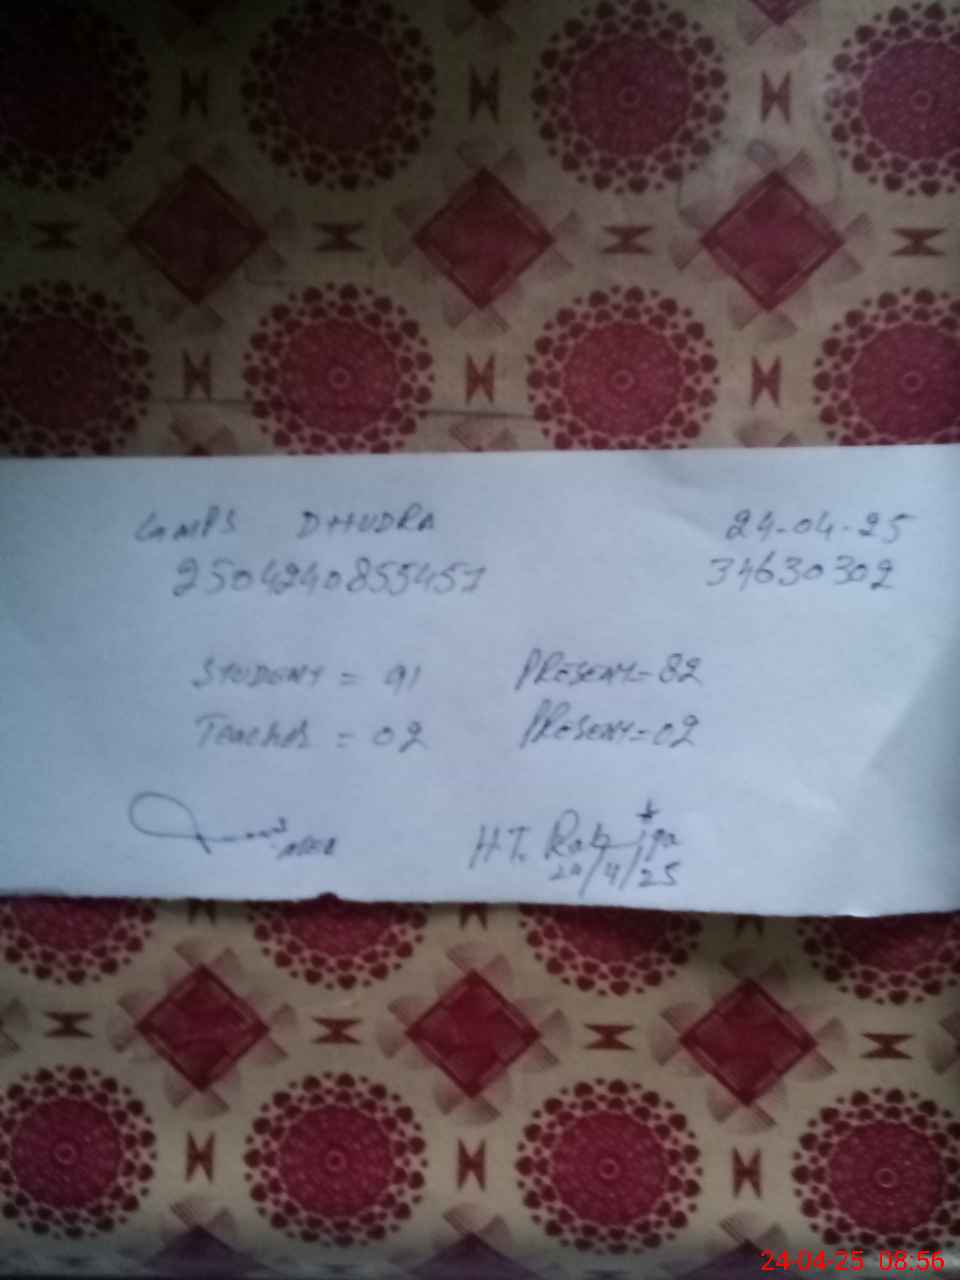 GMPS DHUDRA 24-04-25
2504240855451 34630302
STUDENT = 91 PRESENT=82
Teacher = 02 PRESENT=02
MEA H.T. Rabiqa
24/4/25
24-04-25 08:56